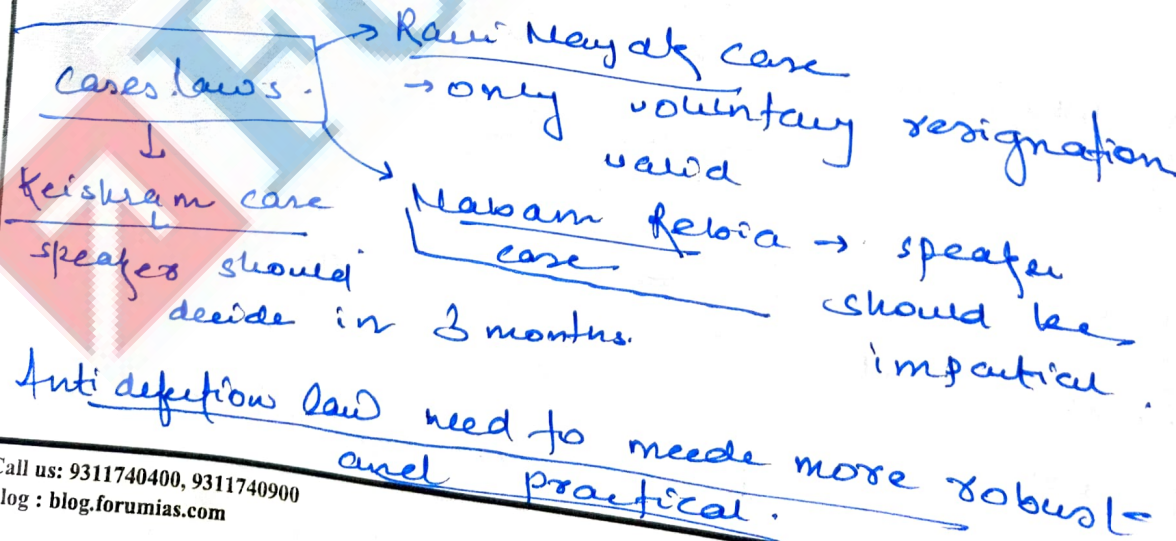 Cases laws.
→ Ravi Nayak case
→ only voluntary resignation
valid
Keishram case
speaker should
decide in 3 months.
Nabam Rebia → speaker
case
should be
impartial.
Anti defection law need to meede more robust
and practical.
Call us: 9311740400, 9311740900
log : blog.forumias.com